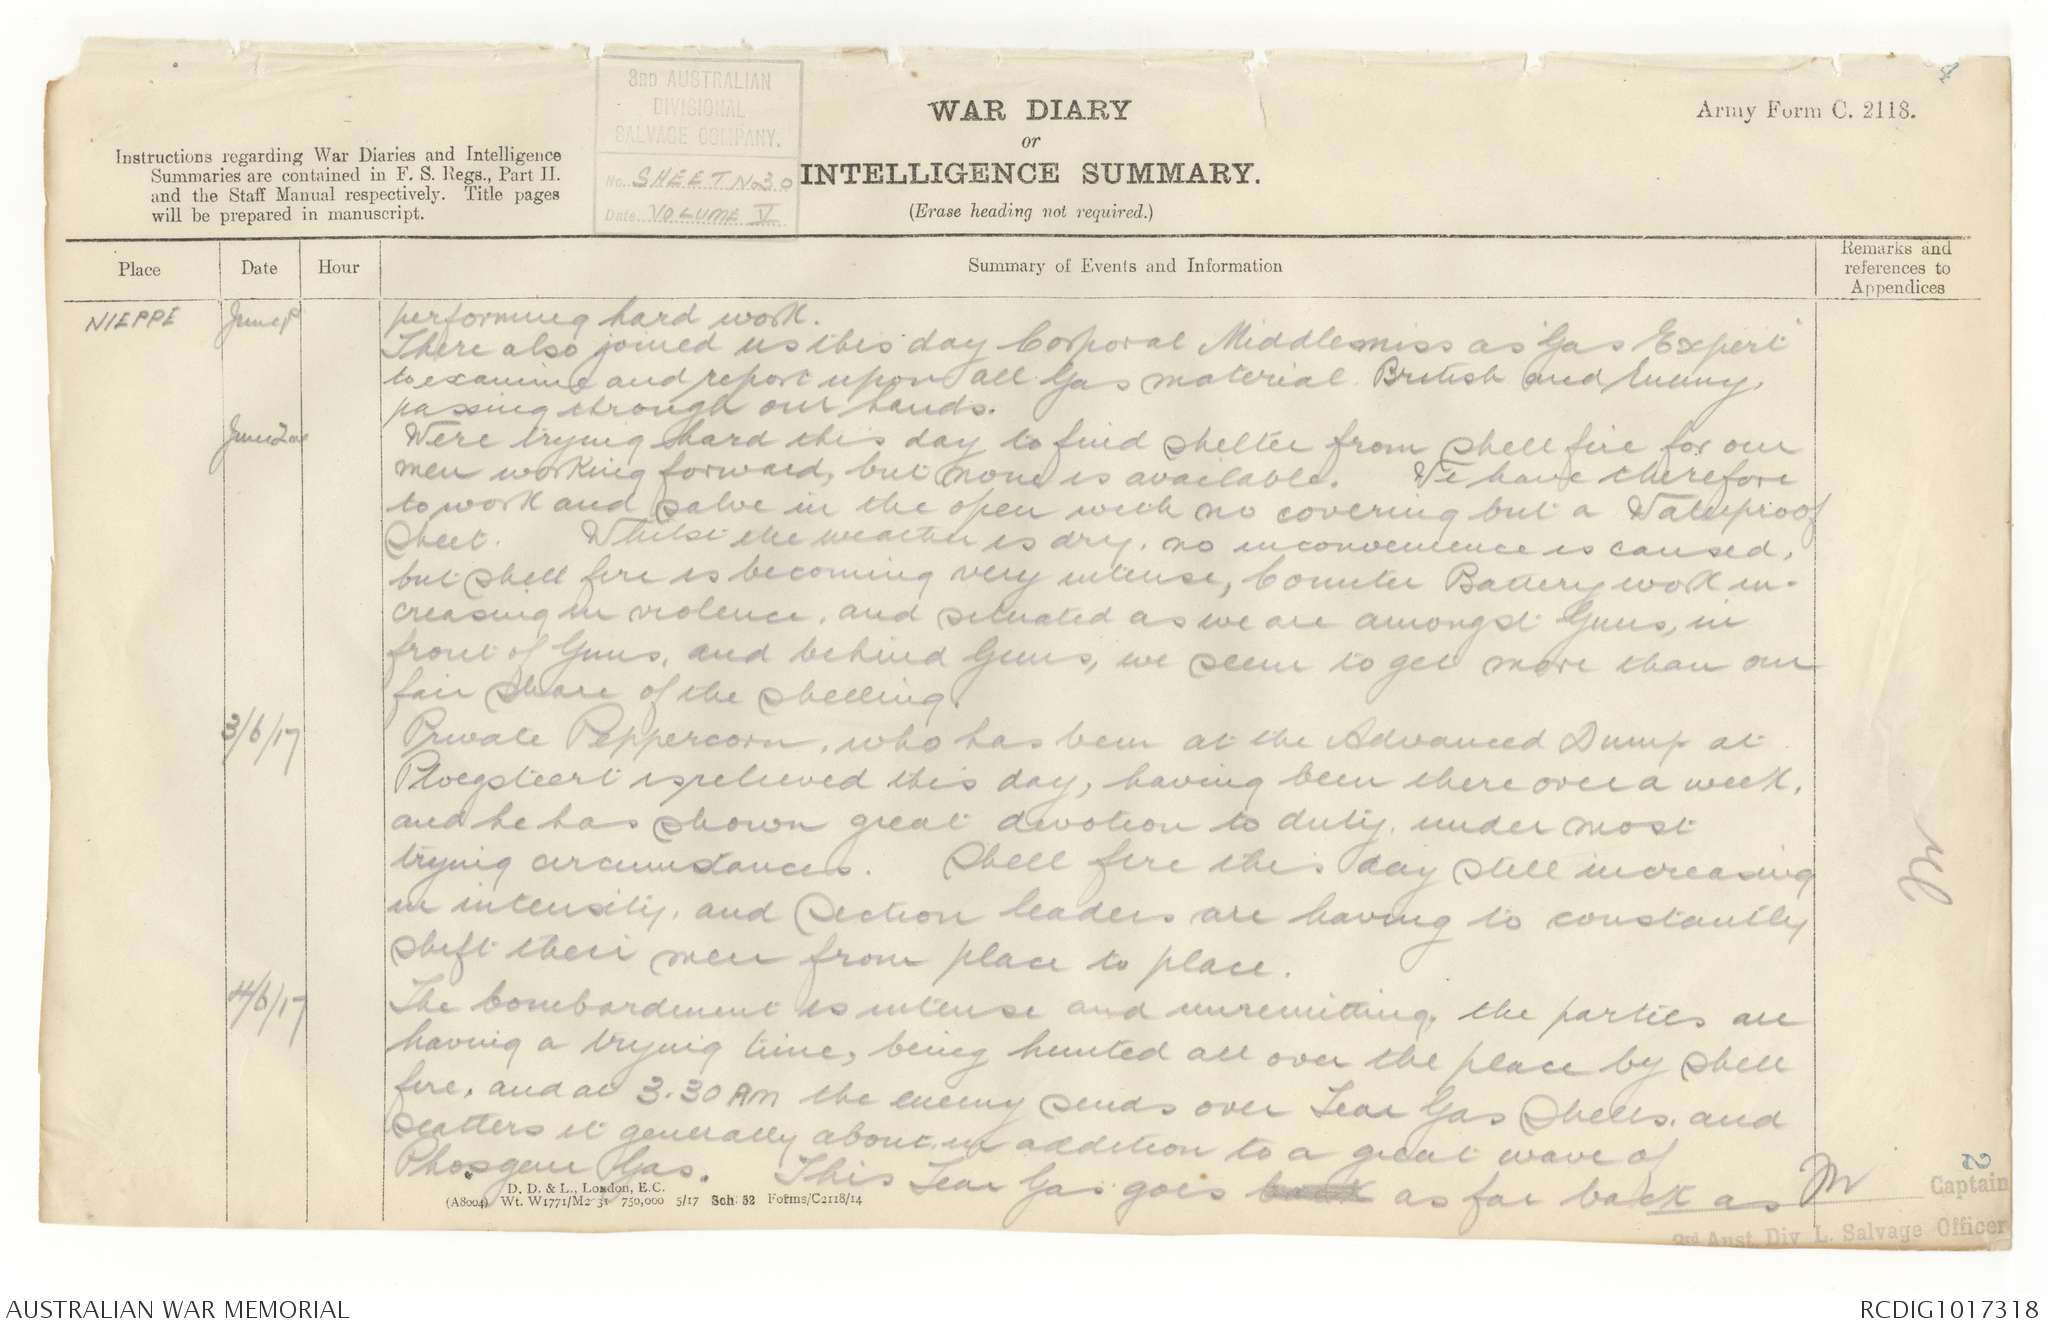 3RD AUSTRALIAN
DIVISIONAL
SALVAGE COMPANY.
No. SHEET No 30
Date. VOLUME V
WAR DIARY
or
INTELLIGENCE SUMMARY.
(Erase heading not required.)
Army Form C. 2118.
Instructions regarding War Diaries and Intelligence
Summaries are contained in F. S. Regs., Part II.
and the Staff Manual respectively. Title pages
will be prepared in manuscript.
Place
Date
Hour
Summary of Events and Information
Remarks and
references to
Appendices
NIEPPE
performing hard work.
There also joined us this day Corporal Middlemiss as "Gas Expert"
to examine and report upon all Gas material British and Enemy,
passing through our hands.
Were trying hard this day to find shelter from shell fire for our
men working forward, but none is available. We have therefore
to work and salve in the open with no covering but a Waterproof
Sheet. Whilst the weather is dry, no inconvenience is caused,
but shell fire is becoming very intense, Counter Battery work in-
creasing in violence, and situated as we are amongst Guns, in
front of Guns, and behind Guns, we seem to get more than our
fair share of the shelling.
3/6/17
Private Peppercorn, who has been at the Advanced Dump at
Ploegsteert is relieved this day, having been there over a week,
and he has shown great devotion to duty, under most
trying circumstances. Shell fire this day still increasing
in intensity, and Section leaders are having to constantly
shift their men from place to place.
4/6/17
The bombardment is intense and unremitting, the parties are
having a trying time, being hunted all over the place by shell
fire, and at 3.30 AM the enemy sends over Tear Gas Shells, and
scatters it generally about, in addition to a great wave of
Phosgene Gas. This Tear Gas goes back as far back as
D. D. & L., London, E.C.
(A8004) Wt. W1771/M2 31 750,000 5/17 Sch. 52 Forms/C2118/14
Captain
3rd Aust. Div L. Salvage Officer
AUSTRALIAN WAR MEMORIAL
RCDIG1017318